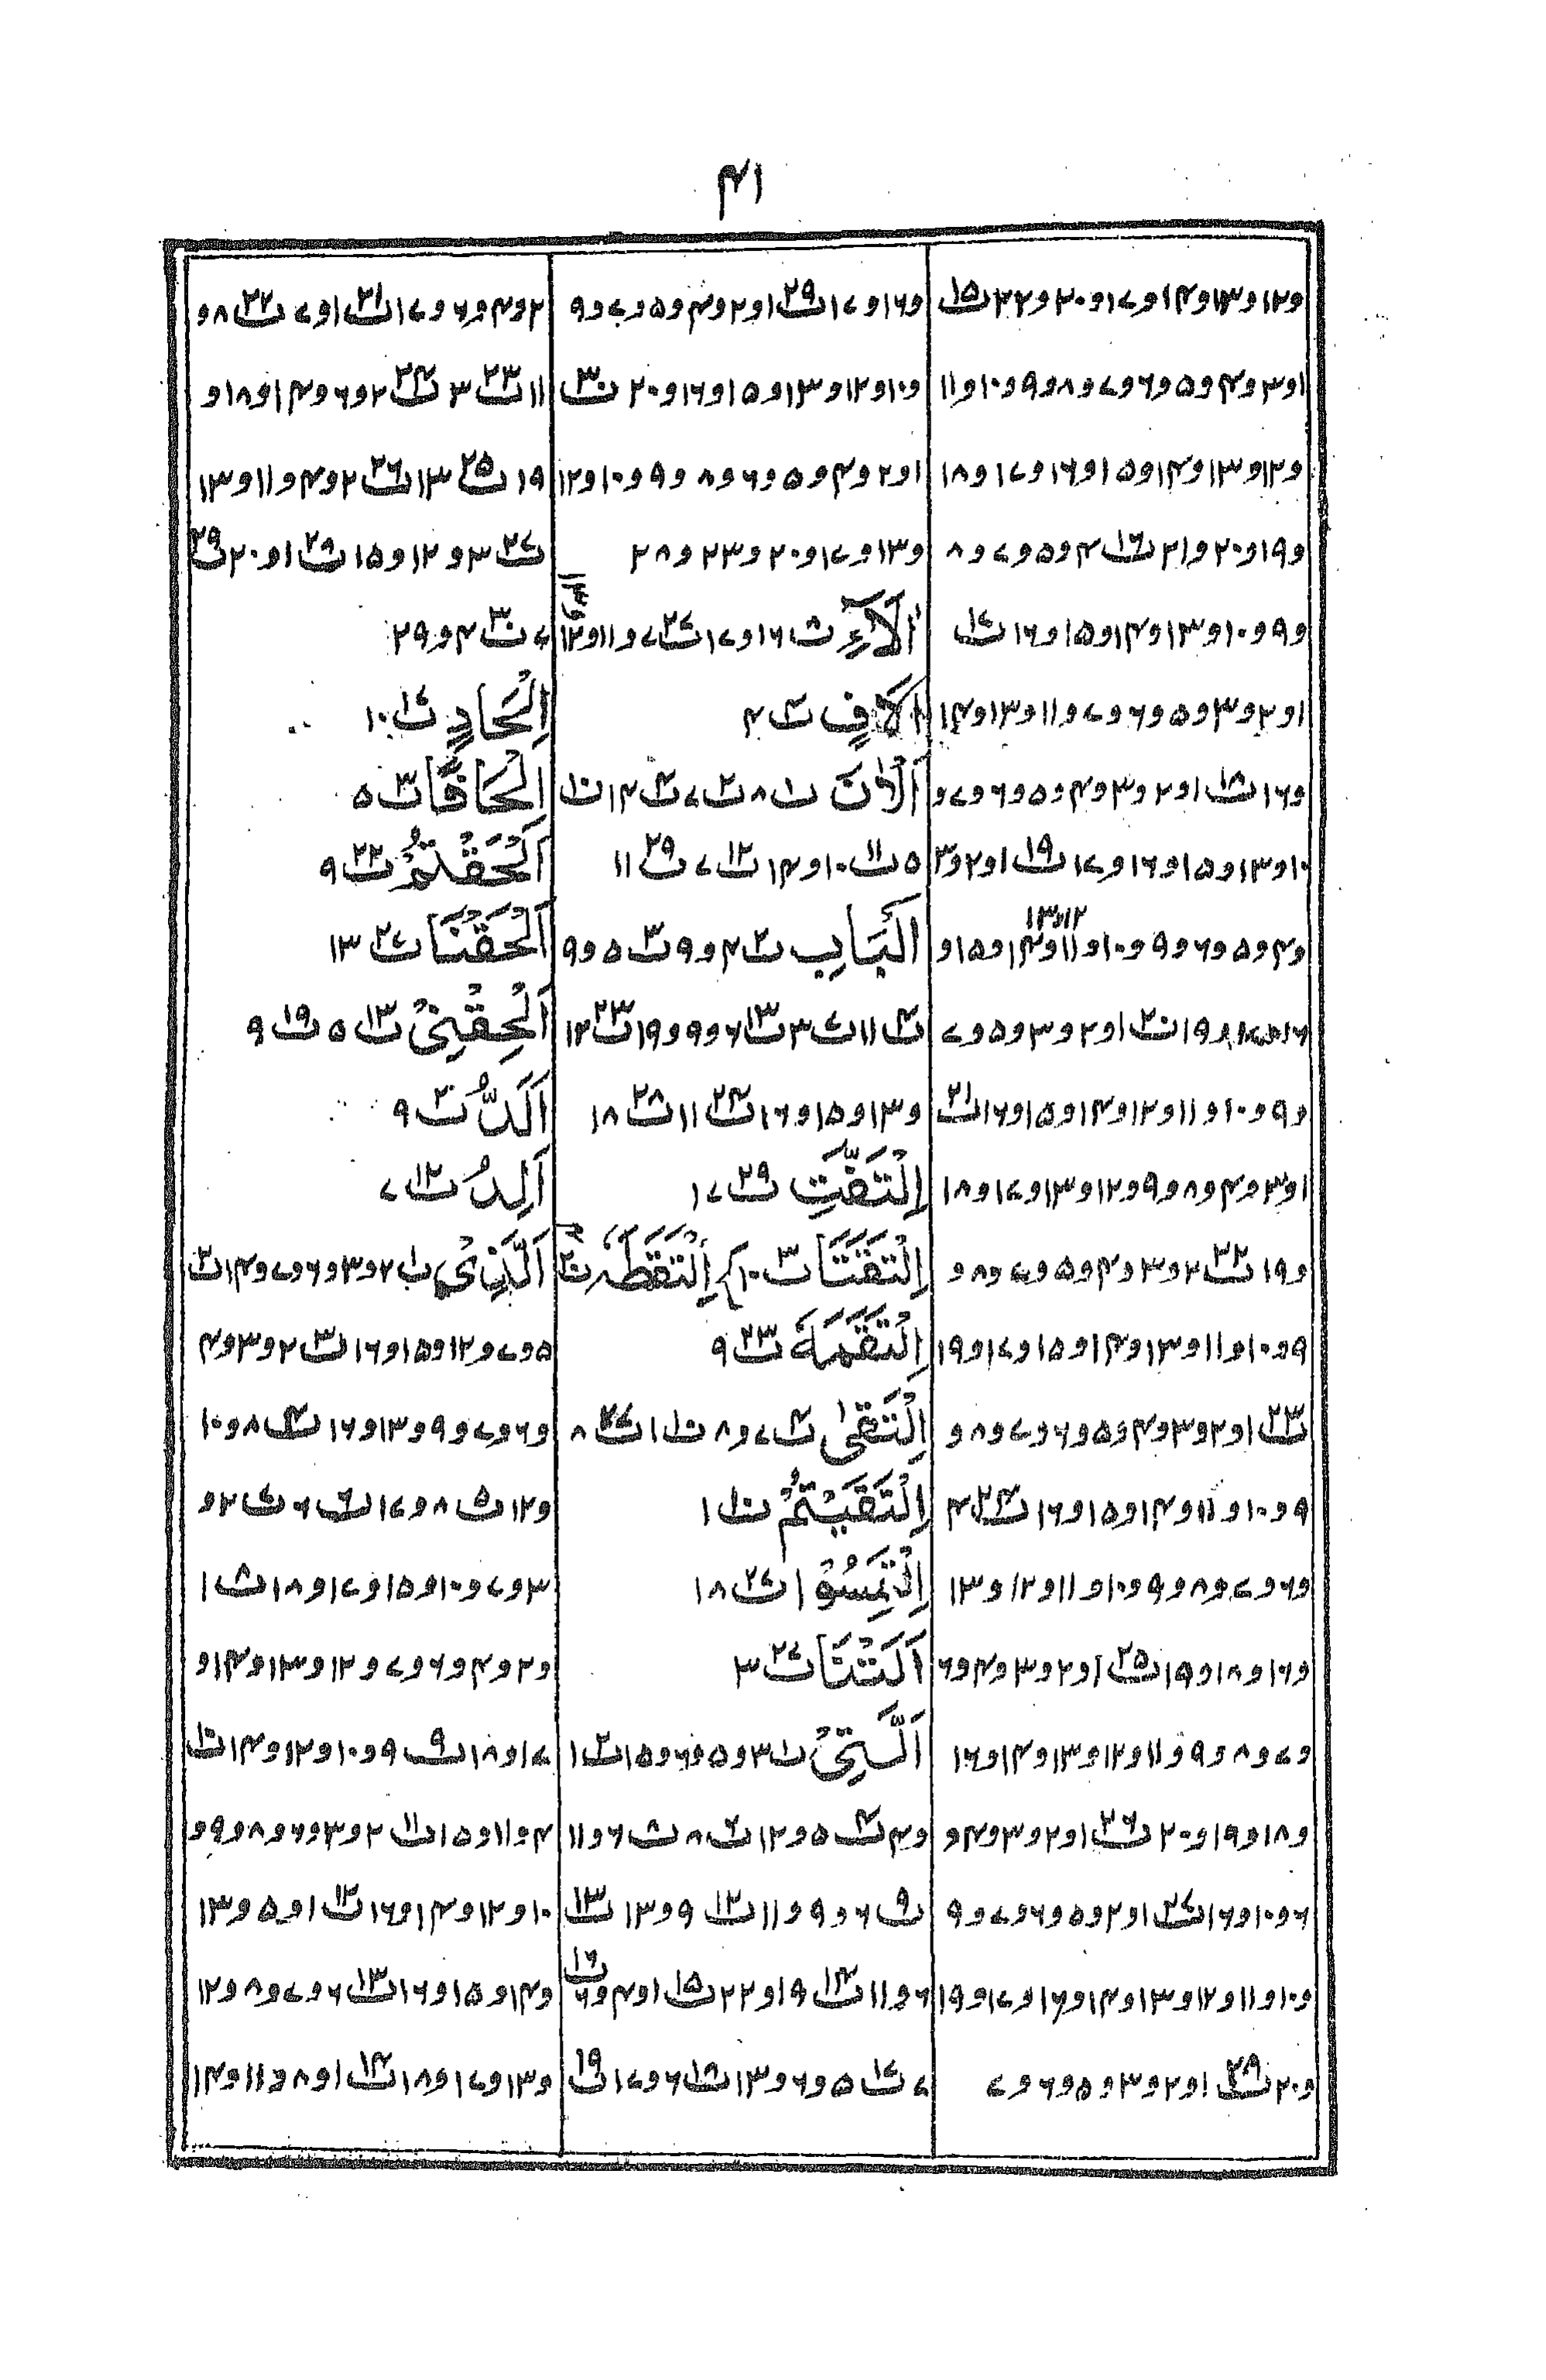 ۴۱
و۱۲و۱۳و۱۴و۱۷و۲۰و۲۲ ت۱۵
۱و۳و۴و۵و۶و۷و۸و۹و۱۰و۱۱
و۱۲و۱۳و۱۴و۱۵و۱۶و۱۷و۱۸
و۱۹و۲۰و۲۱ ت۱۶ ۴و۵و۷و۸
و۹و۱۰و۱۳و۱۴و۱۵و۱۶ ت۱۷
۱و۲و۳و۵و۶و۷و۱۱و۱۳و۱۴
و۱۶ ت۱۸ ۱و۲و۳و۴و۵و۶و۷و
۱۰و۱۳و۱۵و۱۶و۱۷ ت۱۹ ۱و۲و۳
و۴و۵و۶و۹و۱۰و۱۱و۱۲و۱۳و۱۴و۱۵و
۱۶و۱۷و۱۸و۱۹ ت۲۰ ۱و۲و۳و۵و۷
و۹و۱۰و۱۱و۱۲و۱۴و۱۵و۱۶ ت۲۱
۱و۳و۴و۸و۹و۱۲و۱۳و۱۷و۱۸
و۱۹ ت۲۲ ۲و۳و۴و۵و۷و۸و
۹و۱۰و۱۱و۱۳و۱۴و۱۵و۱۷و۱۹
ت۲۳ ۱و۲و۳و۴و۵و۶و۷و۸و
۹و۱۰و۱۱و۱۴و۱۵و۱۶ ت۲۴ ۴
و۶و۷و۸و۹و۱۰و۱۱و۱۲و۱۳
و۱۶و۱۸و۱۵ ت۲۵ ۱و۲و۳و۴و۶
و۷و۸و۹و۱۱و۱۲و۱۳و۱۴و۱۶
و۱۸و۱۹و۲۰ ت۲۶ ۱و۲و۳و۴و
۶و۱۰و۱۶ ت۲۷ ۱و۲و۵و۶و۷و۹
و۱۰و۱۱و۱۲و۱۳و۱۴و۱۶و۱۷و۱۹
و۲۰ ت۲۸ ۱و۲و۳و۵و۶و۷
و۱۶و۱۷ ت۲۹ ۱و۲و۴و۵و۷و۹
و۱۰و۱۲و۱۳و۱۵و۱۶و۲۰ ت۳۰
۱و۲و۴و۵و۶و۸و۹و۱۰و۱۲
و۱۳و۱۷و۲۰و۲۳و۲۸
اٰلَآءِ ت۸ ۱۶و۱۷ ت۲۷ ۷و۱۱و۱۲
اٰلَافٍ ت۴ ۴
اَلْاٰنَ ت۱ ۸ ت۲ ۷ ت۴ ۱۴ ت۱۰
۵ ت۱۱ ۱۰و۱۴ ت۱۲ ۷ ت۲۹ ۱۱
اَلْبَابِ ت۲ ۴و۹ ت۳ ۵و۹
ت۴ ۱۱ ت۷ ۳ ت۱۳ ۶و۹و۱۹ ت۲۳ ۱۲
و۱۳و۱۵و۱۶ ت۲۴ ۱۱ ت۲۸ ۱۸
اِلْتَفَّتِ ت۲۹ ۱۷
اِلْتَقَتَا ت۳ ۱۰} اِلْتَقَطَهٗ ت۲۰
اِلْتَقَمَهُ ت۲۳ ۹
اِلْتَقٰى ت۴ ۷و۸ ت۱۰ ۱ ت۲۷ ۸
اِلْتَقَيْتُمْ ت۱۰ ۱
اِلْتَمِسُوْا ت۲۷ ۱۸
اَلَتْنَا ت۲۷ ۳
اَلَّتِىْ ت۱ ۳و۵و۶و۱۵ ت۲ ۱
و۴ ت۴ ۵و۱۲ ت۶ ۸ ت۸ ۶و۱۱
ت۹ ۶و۹و۱۱ ت۱۲ ۹و۱۳ ت۱۳
۶و۱۱ ت۱۴ ۱۹و۲۲ ت۱۵ ۱و۴و۶ ت۱۶
۷ ت۱۷ ۵و۶و۱۳ ت۱۸ ۶و۱۷ ت۱۹
۲و۴و۶و۱۷ ت۲۱ ۱و۷ ت۲۲ ۸و
۱۱ ت۲۳ ۳ ت۲۴ ۲و۶و۱۴و۱۸و
۱۹ ت۲۵ ۱۳ ت۲۶ ۲و۴و۱۱و۱۳
ت۲۷ ۳و۱۲و۱۵ ت۲۸ ۱و۲۰ ت۲۹
۷ ت۳۰ ۴و۲۹
اِلْحَادٍ ت۱۷ ۱۰
اِلْحَافًا ت۳ ۵
اَلْحَقْتُمْ ت۲۲ ۹
اَلْحَقْنَا ت۲۷ ۱۳
اَلْحِقْنِىْ ت۱۳ ۵ ت۱۹ ۹
اَلَدُّ ت۲ ۹
اَلِدُ ت۱۲ ۷
اَلَّذِىْ ت۱ ۲و۳و۶و۷و۱۴ ت۲
۵و۷و۱۲و۱۵و۱۶ ت۳ ۲و۳و۴
و۶و۷و۹و۱۳و۱۶ ت۴ ۸و۱۰
و۱۲ ت۵ ۸و۱۷ ت۶ ۶ ت۷ ۲و
۳و۷و۱۰و۱۵و۱۷و۱۸ ت۸ ۱
و۲و۴و۶و۷و۱۲و۱۳و۱۴و
۱۷و۱۸ ت۹ ۹و۱۰و۱۲و۱۴ ت۱۰
۴و۱۱و۱۵ ت۱۱ ۲و۳و۶و۸و۹و
۱۰و۱۲و۱۴و۱۶ ت۱۲ ۱و۵و۱۳
و۱۴و۱۵و۱۶ ت۱۳ ۶و۷و۸و۱۲
و۱۳و۱۷و۱۸ ت۱۴ ۱و۸و۱۱و۱۴